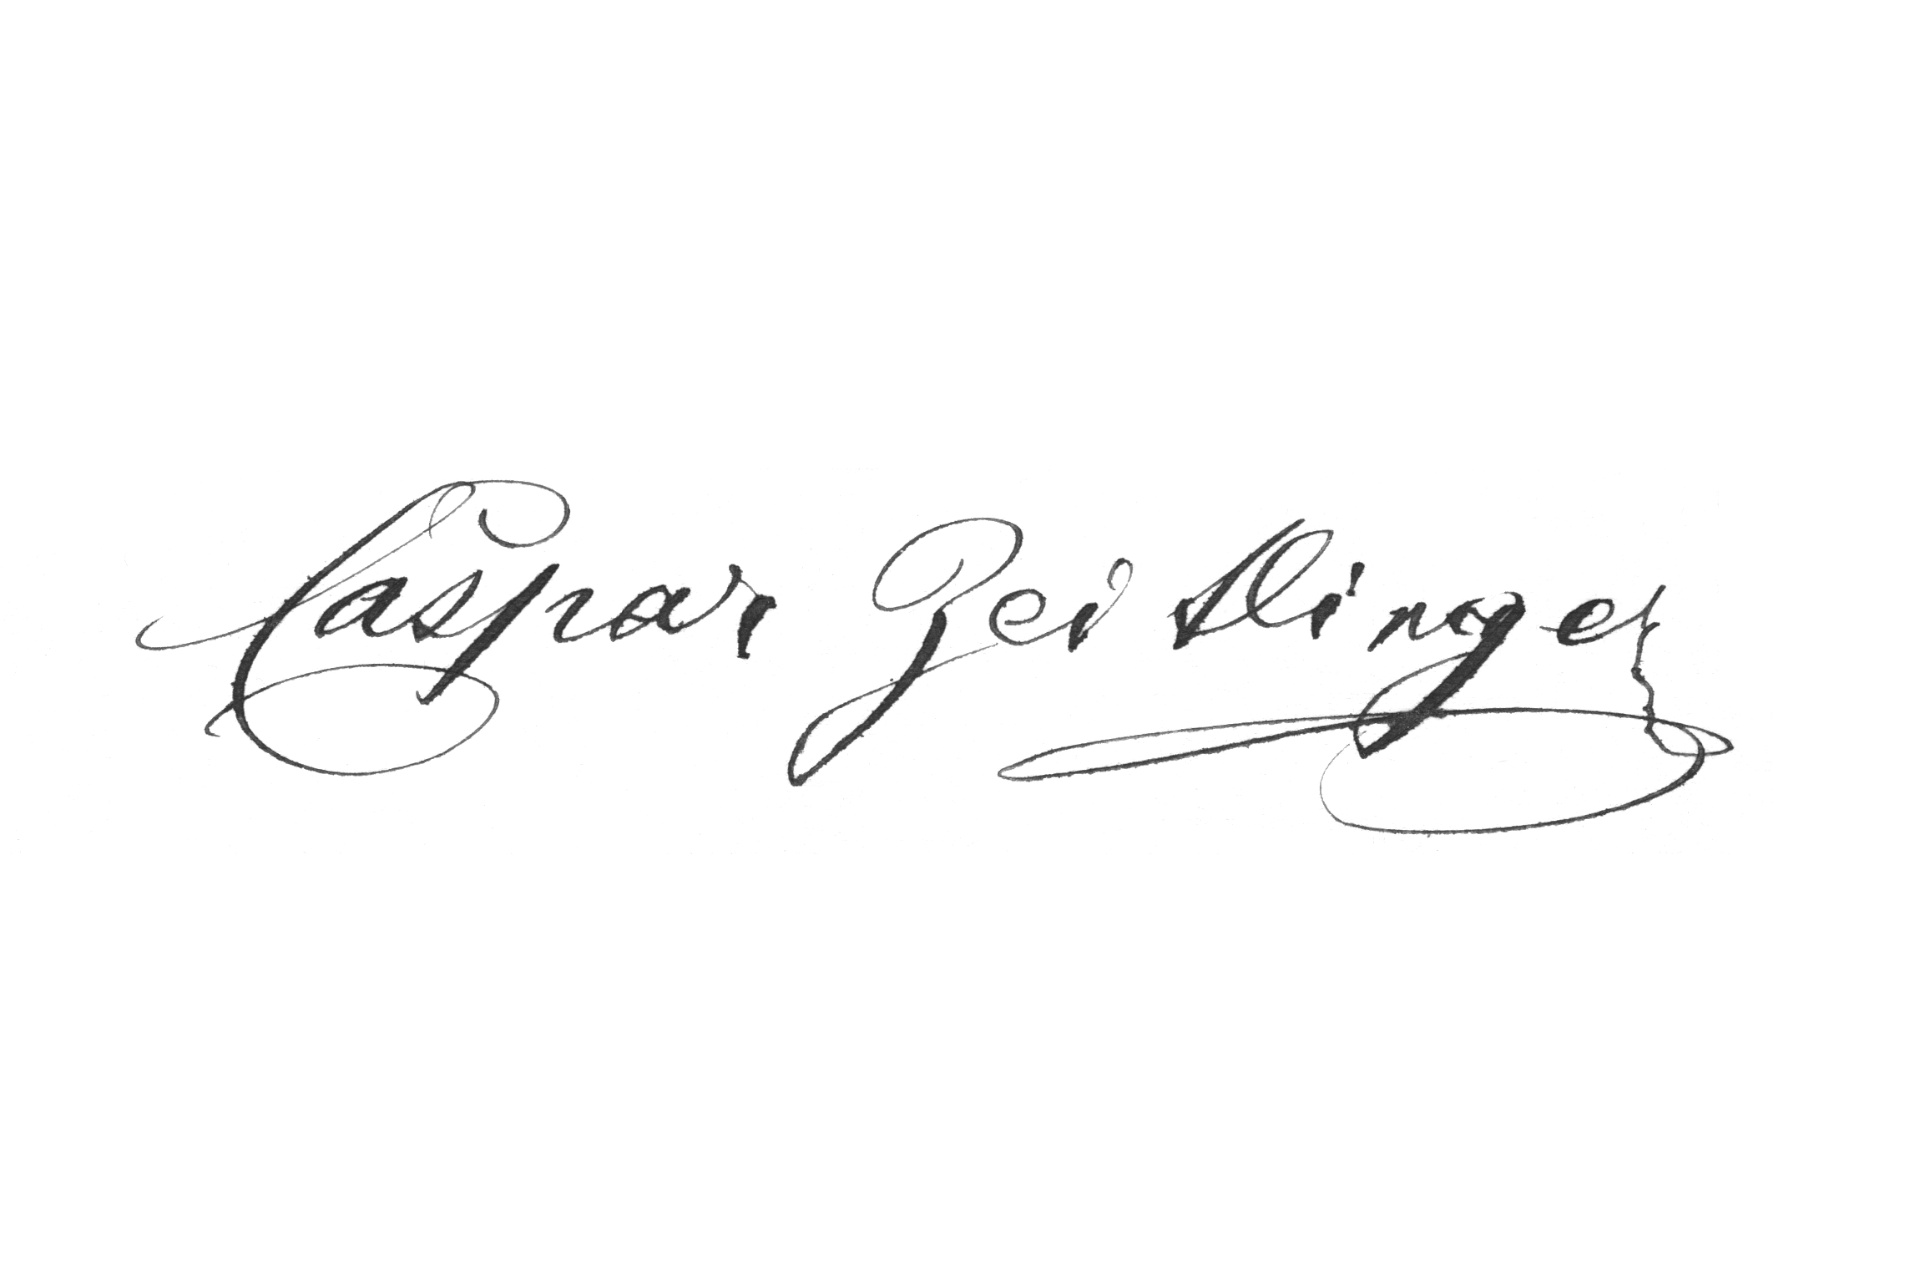 Caspar Zeitlinger